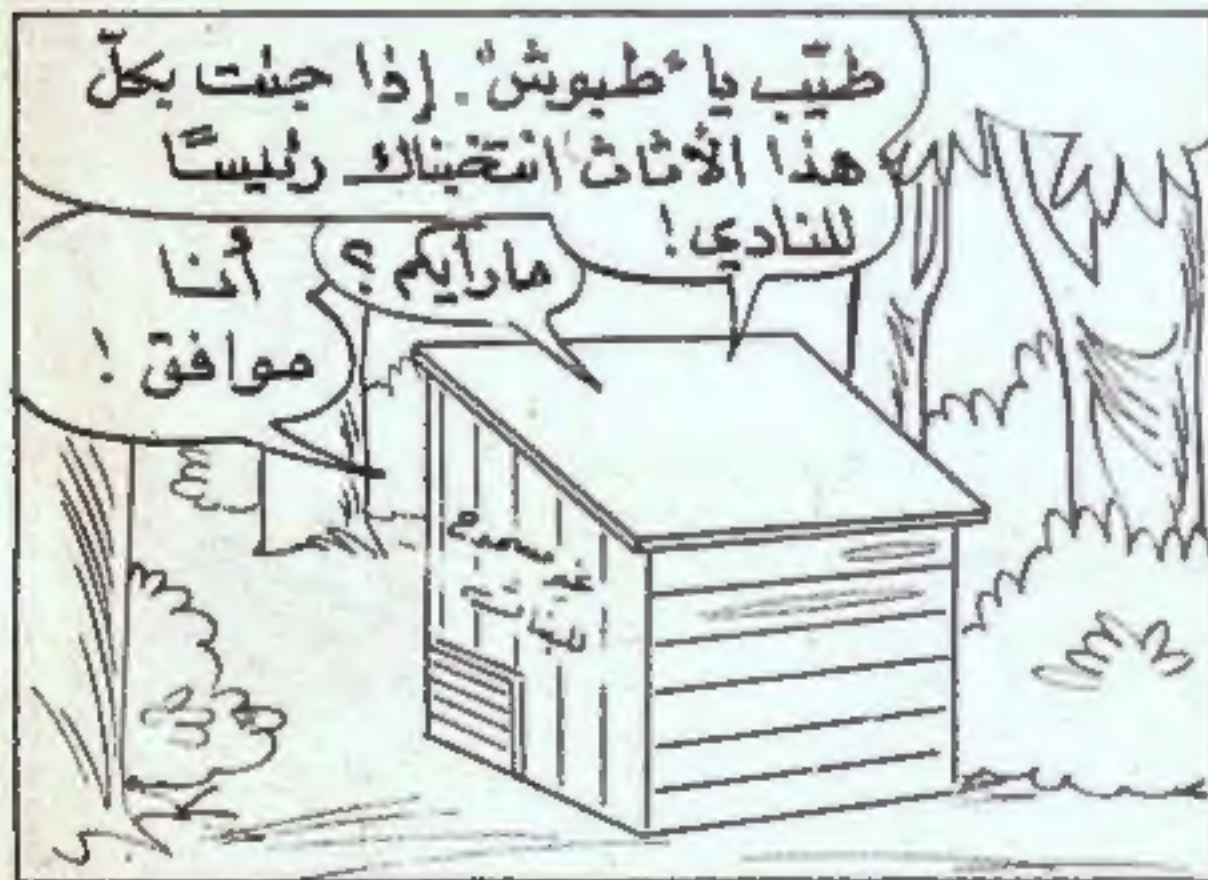 طيّب يا "طبوش". إذا جئت بكلّ
هذا الأثاث انتخبناك رئيسًا
للنادي!
ما رأيكم؟
أنا
موافق!
غير مسموح
للبنات